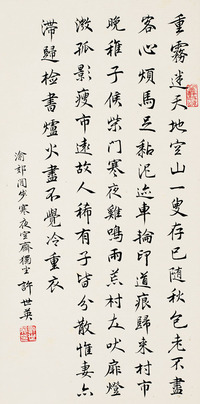 重霧迷天地空山一叟存已随秋色老不盡
客心煩馬足黏泥迹車輪印道痕歸来村市
晚稚子候柴門寒夜雞鳴雨荒村犬吠扉燈
微孤影瘦市遠故人稀有子皆分散惟妻亦
滯歸检書爐火盡不覺冷重衣
渝郊閒步寒夜空齋獨坐 許世英